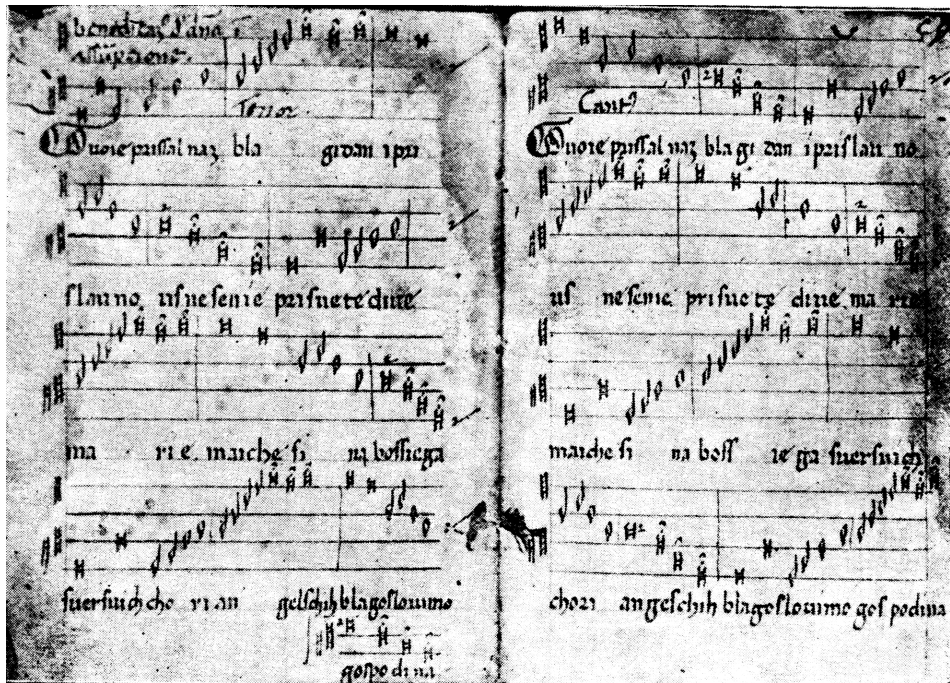 Tenor
Tuoie prissal naz bla gidan i pri
slauno usnesenie prisuete diue
ma rie maiche si na bossiega
suersuich cho ri an gelschih blagoslouimo
gospodina
Cant9
Tuoie prissal naz bla gi dan i prislau no
us nesenie prisue te diue ma rie
maiche si na boss ie ga suersuich
chori angeschih blagoslouimo gospodina